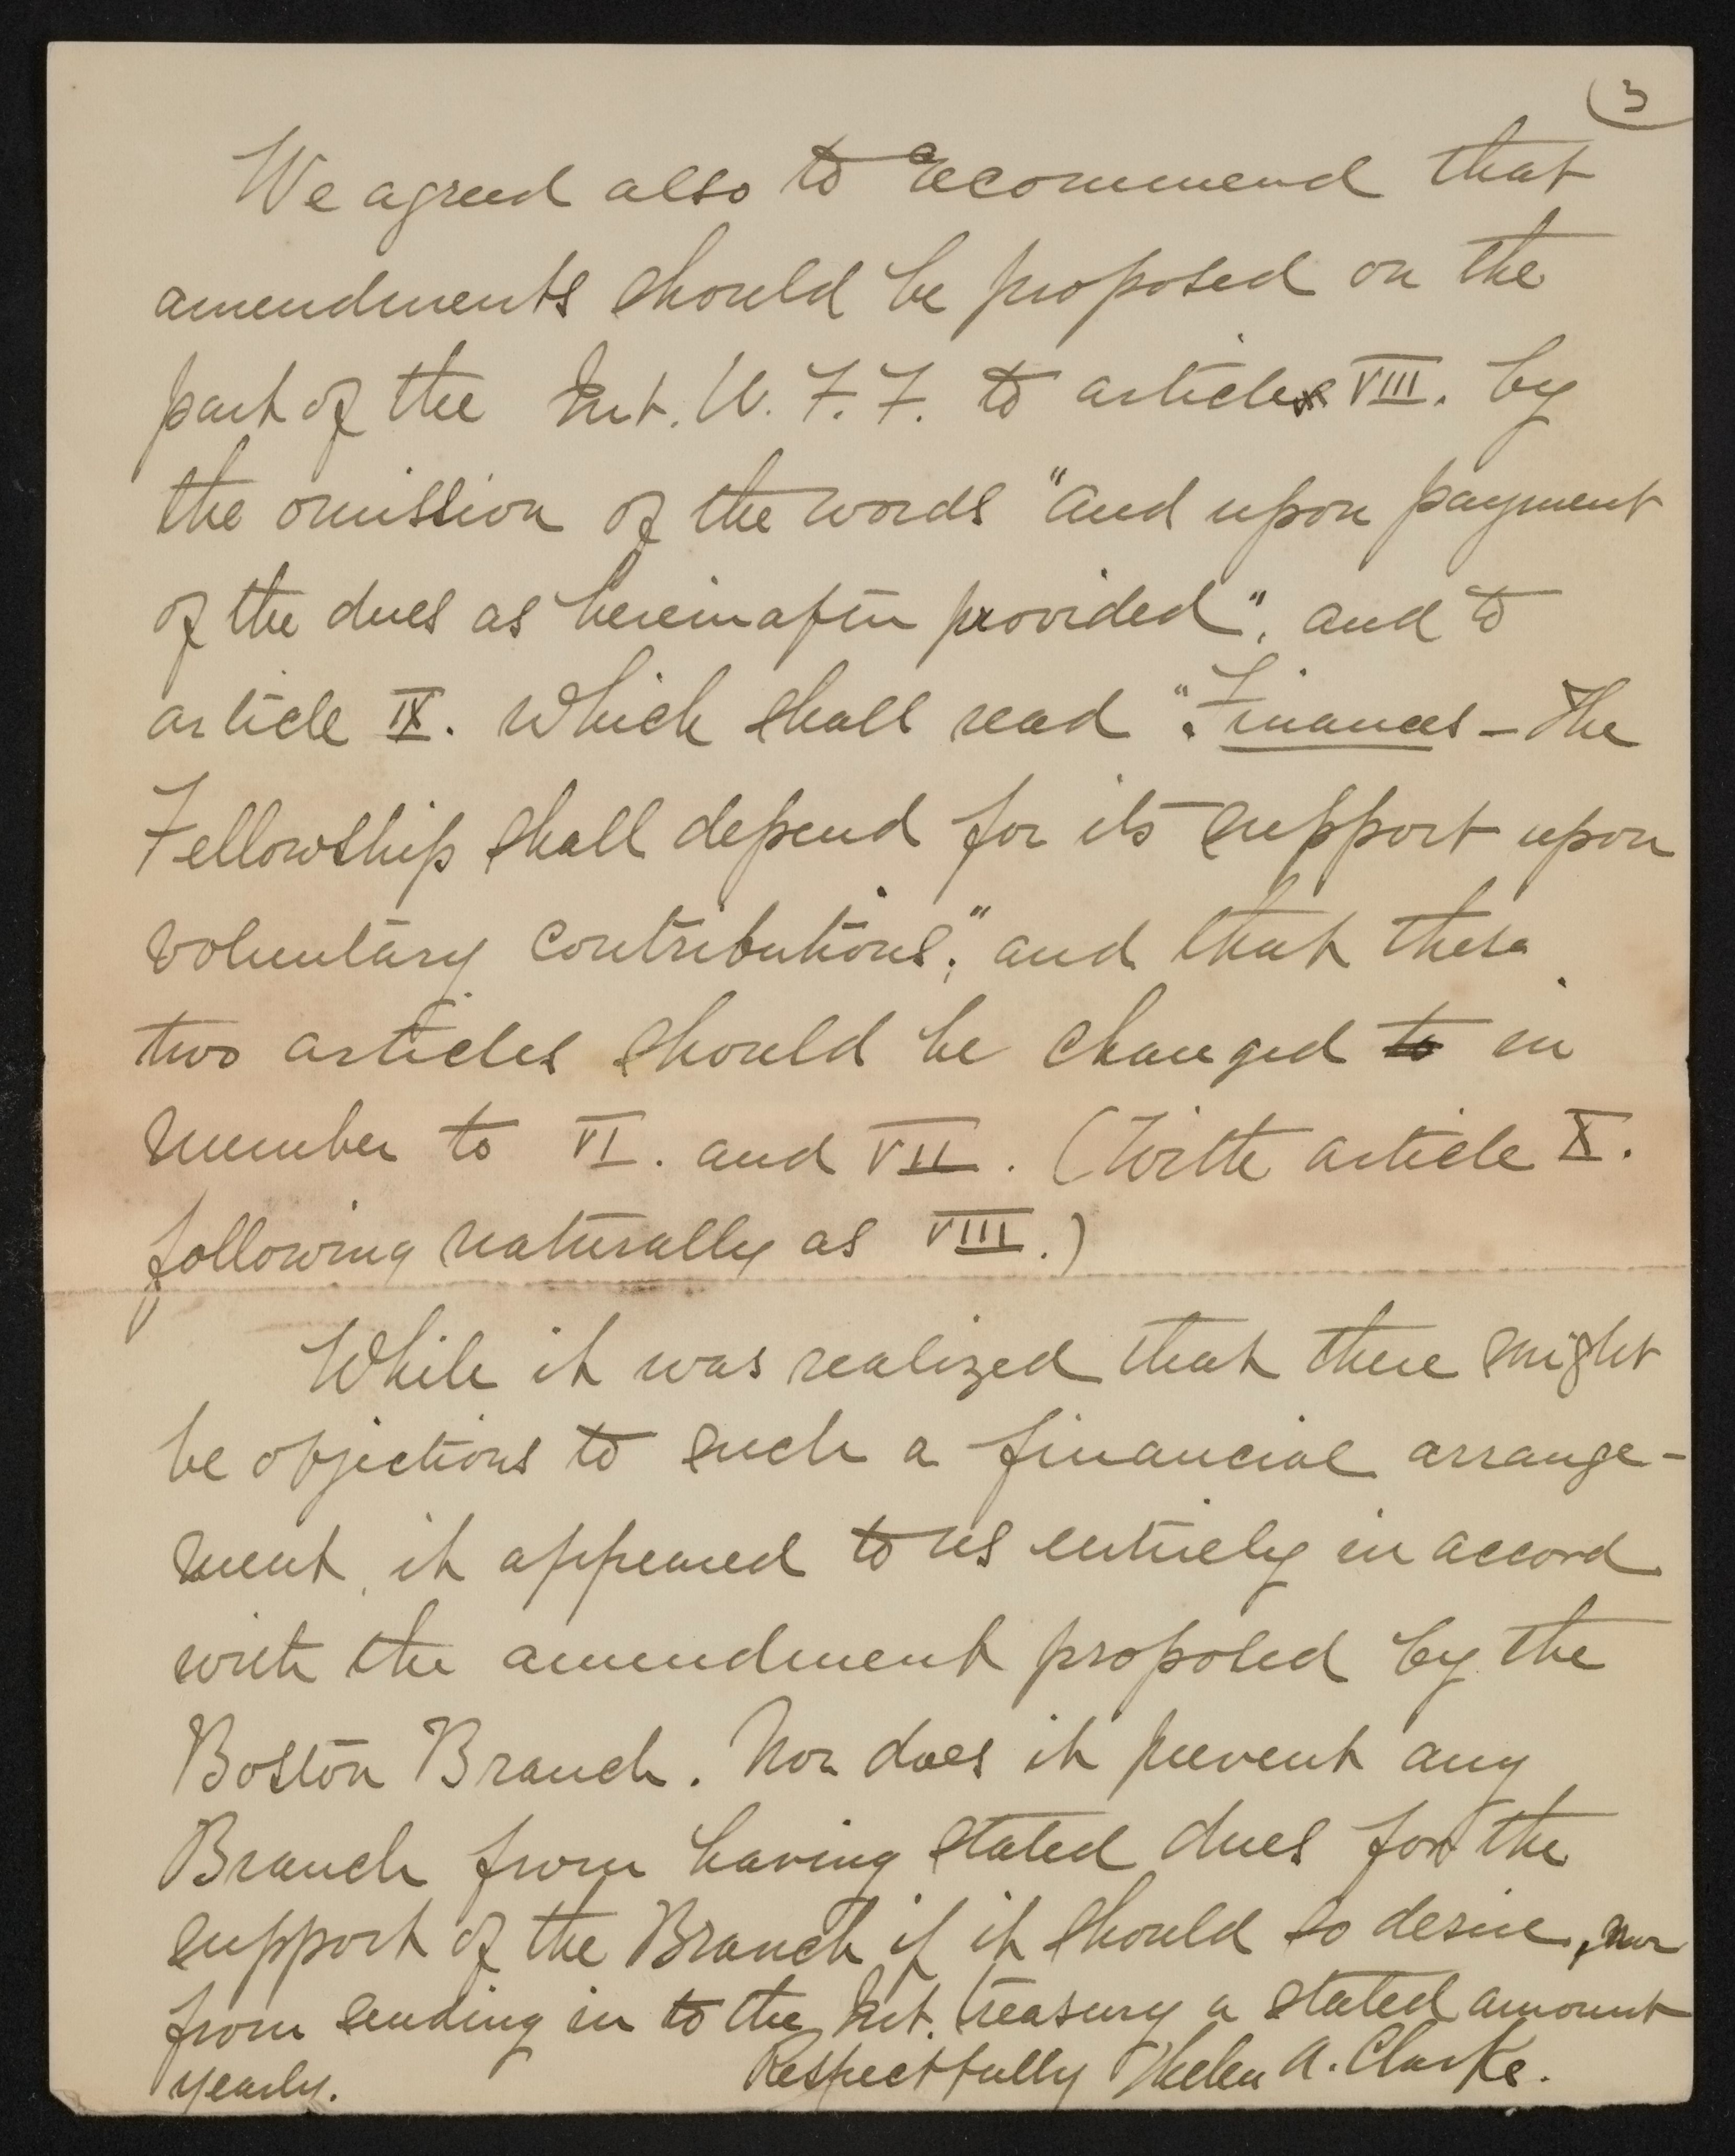 3
We agreed also to recommend that
amendments should be proposed on the
part of the Int. W. F. F. to article VIII. by
the omission of the words "and upon payment
of the dues as hereinafter provided", and to
article IX. which shall read "Finances – The
Fellowship shall depend for its support upon
voluntary contributions;" and that these
two articles should be changed to in
number to VI. and VII. (With article X.
following naturally as VIII.)
While it was realized that there might
be objections to such a financial arrange-
ment, it appeared to us entirely in accord
with the amendment proposed by the
Boston Branch. Nor does it prevent any
Branch from having stated dues for the
support of the Branch if it should so desire, nor
from sending in to the Int. treasury a stated amount
yearly. Respectfully Helen A. Clarke.